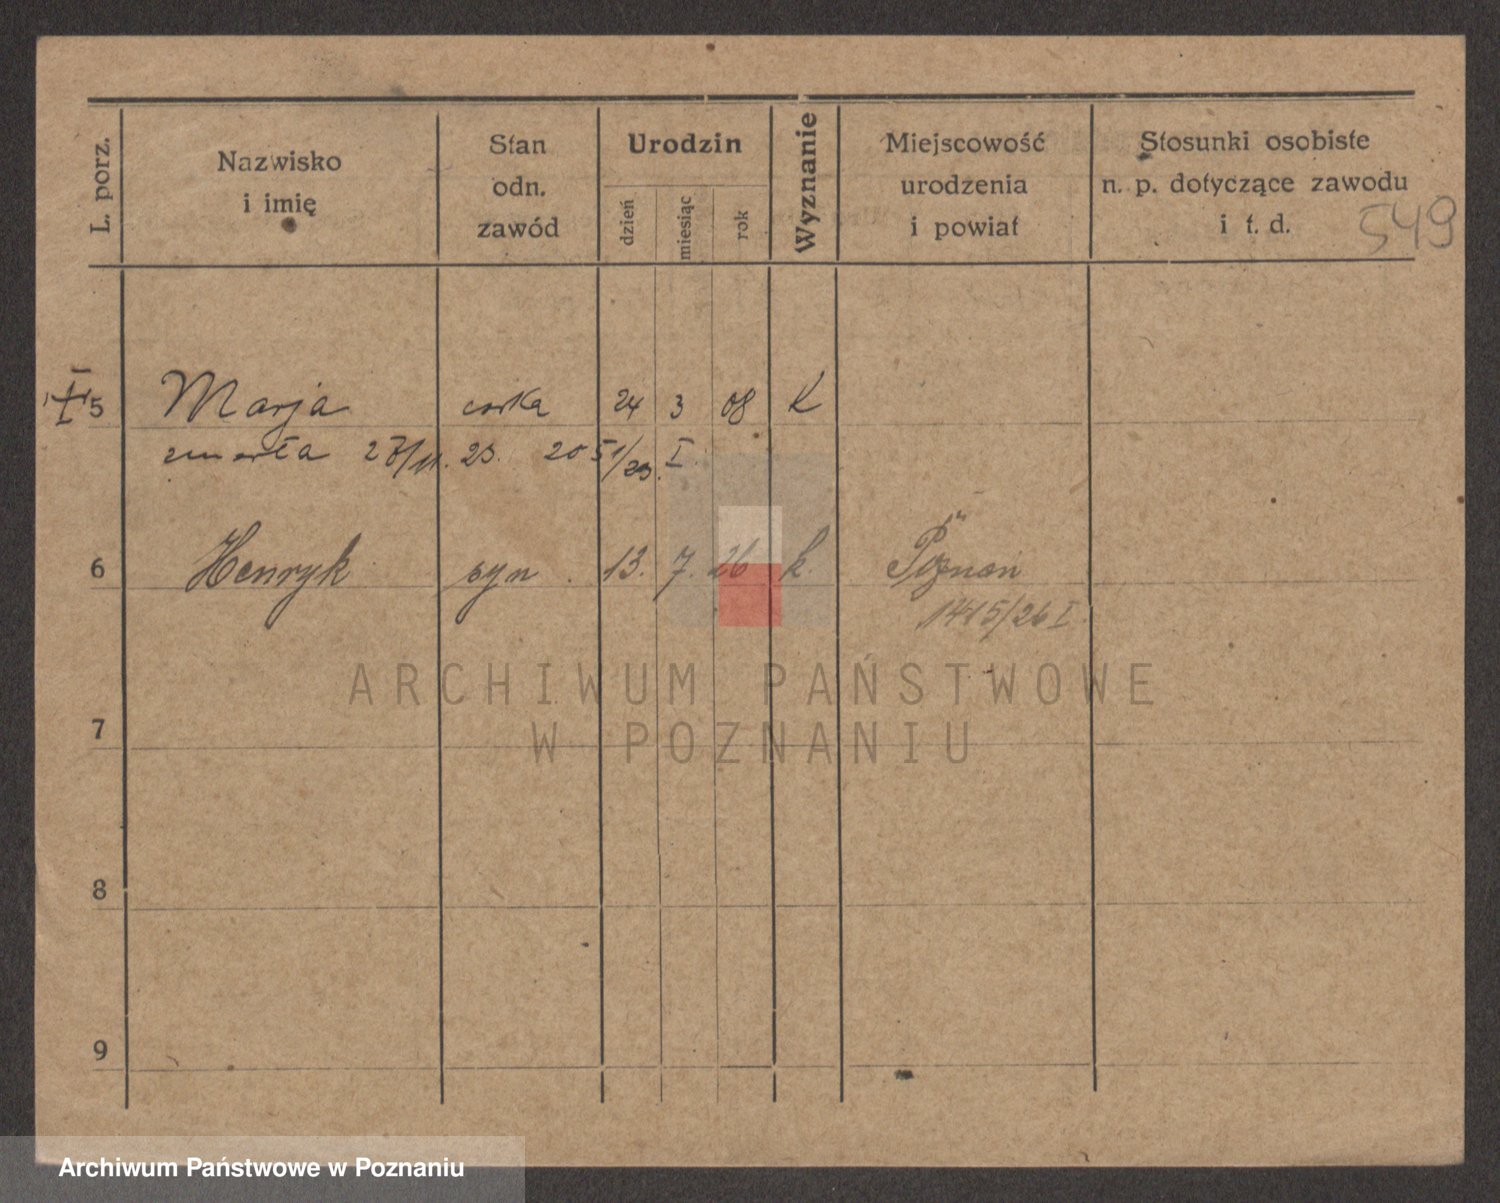 L. porz.
Nazwisko
i imię
Stan
odn.
zawód
Urodzin
dzień
miesiąc
rok
Wyznanie
Miejscowość
urodzenia
i powiat
Stosunki osobiste
n. p. dotyczące zawodu
i t. d.
549
5 Marja córka 24 3 08 K
zmarła 23. 2051/23. I.
6 Henryk syn. 13. 7. 26 k. Poznań
1415/26 I.
ARCHIWUM PAŃSTWOWE
W POZNANIU
7
8
9
Archiwum Państwowe w Poznaniu